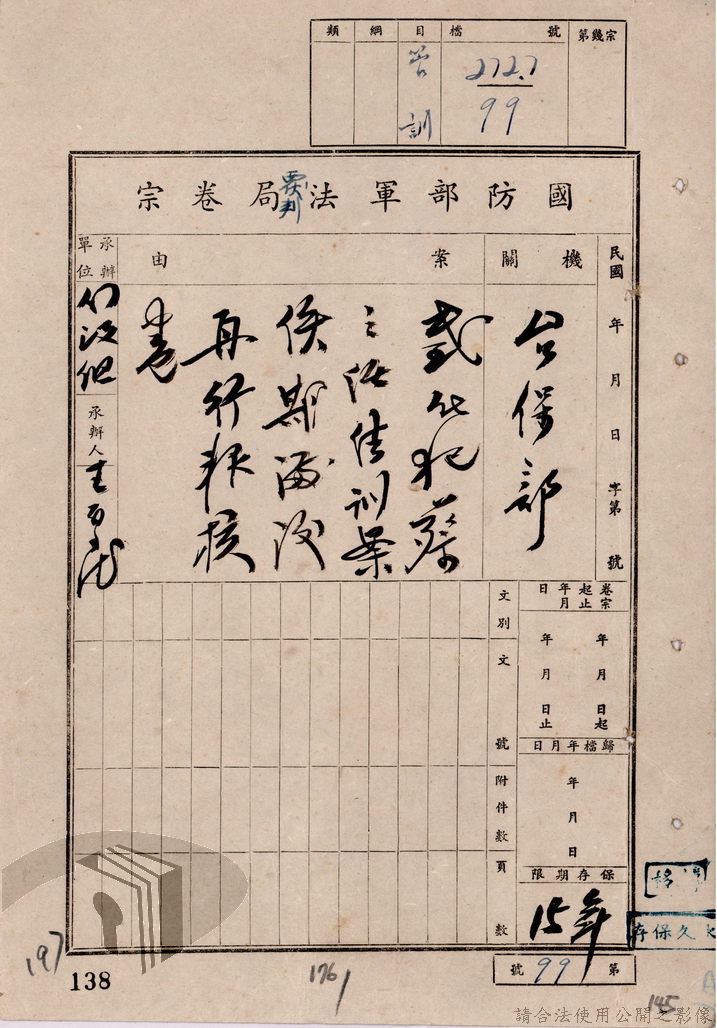 類 綱 目 檔 號 第幾宗
管訓 272.7
99
國防部軍法局卷宗
覆判
民國 年 月 日 字第 號
機關
台保部
案由
感化犯蔡
侯期滿後
再行報核
卷
承辦單位
承辦人
卷宗起止年月日
年 月 日起
年 月 日止
歸檔年月日
年 月 日
保存期限
15年
文別
文號
附件數
頁數
永久保存
第 99 號
197
138
176
145
請合法使用公開之影像